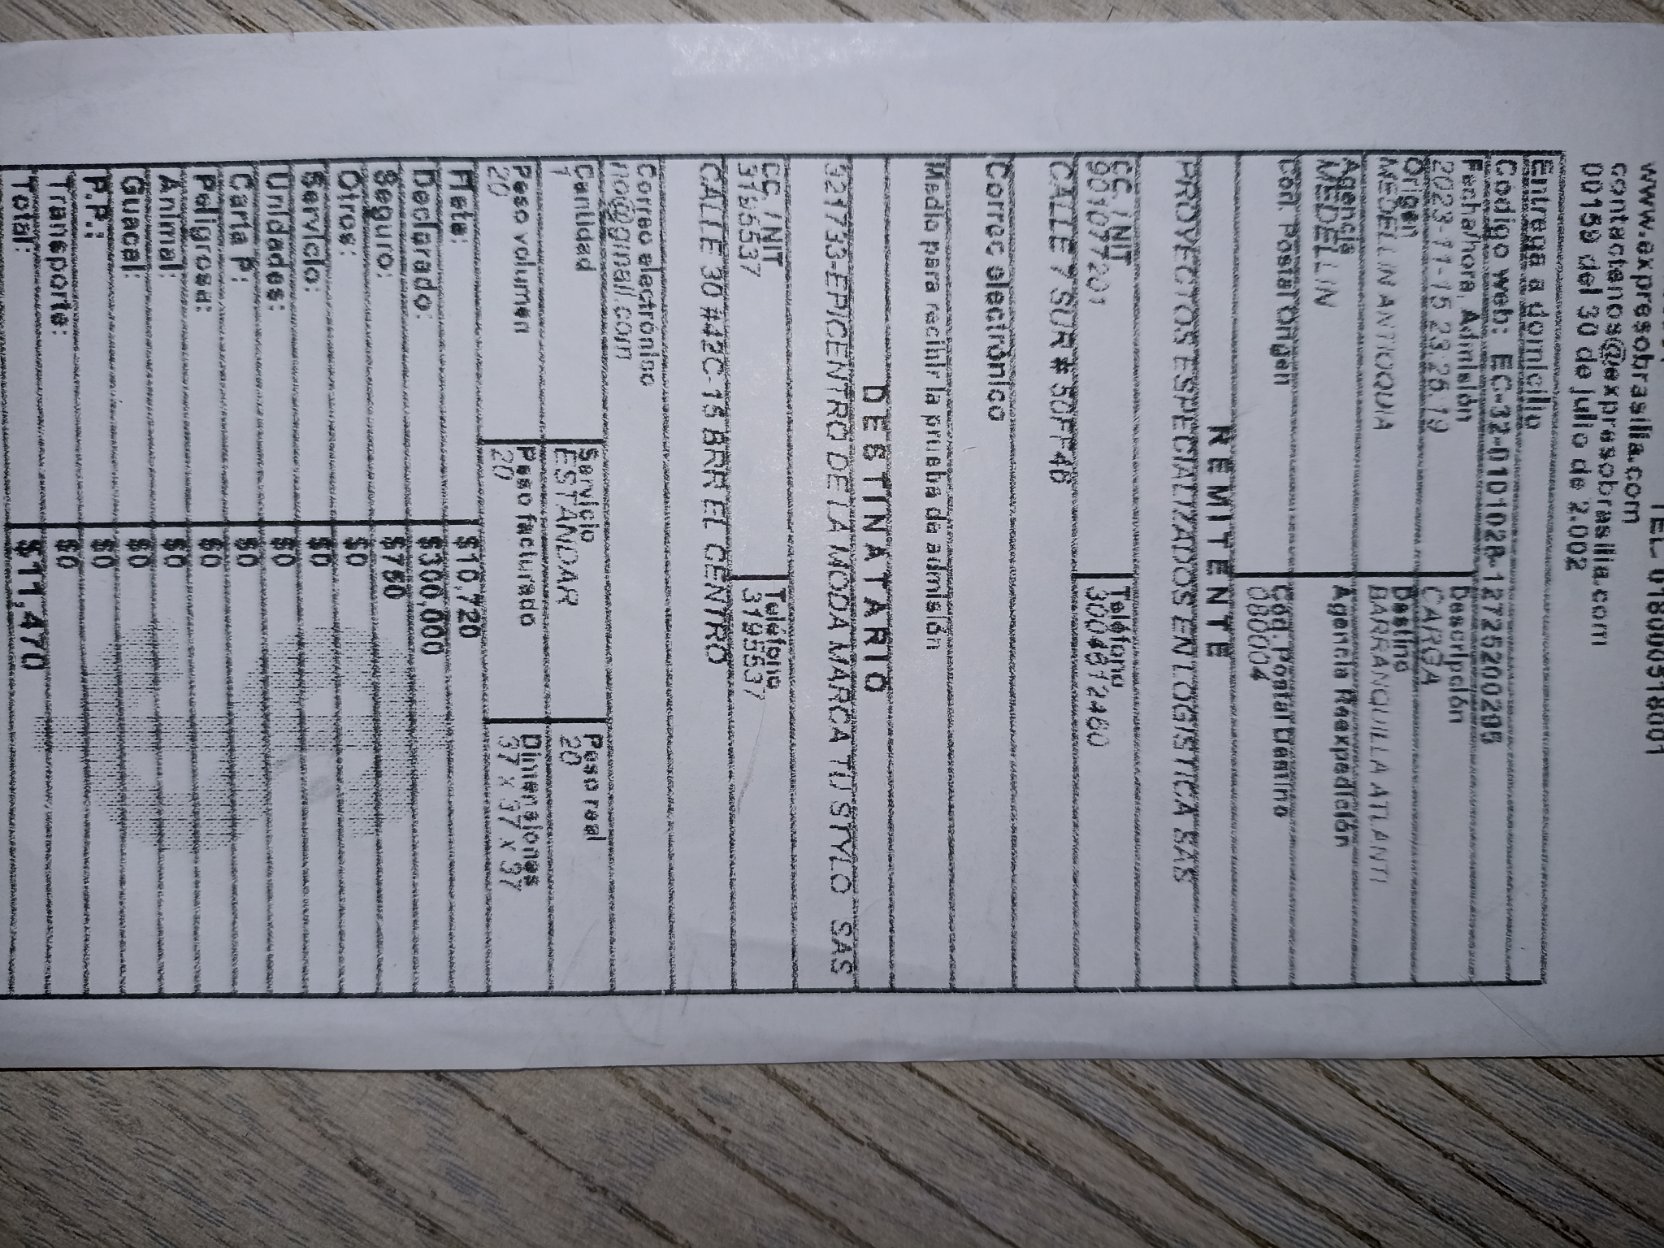 TEL 018000518001
www.expresobrasilia.com
contactenos@expresobrasilia.com
00159 del 30 de julio de 2.002
Entrega a domicilio
Codigo web: EC-32-0101028-12725200295
Fecha/hora. Admisión Descripción
2023-11-15 23.26.19 CARGA
Origen Destino
MEDELLIN ANTIOQUIA BARRANQUILLA ATLANTI
Agencia Agencia Reexpedición
MEDELLIN
Cod. Postal Origen Cod. Postal Destino
080004
REMITENTE
PROYECTOS ESPECIALIZADOS EN LOGISTICA SAS
CC. / NIT Teléfono
901077201 3004812460
CALLE 7 SUR # 50FF46
Correo electrónico
Medio para recibir la prueba de admisión
DESTINATARIO
321733-EPICENTRO DE LA MODA MARCA TU STYLO SAS
CC. / NIT Teléfono
3195537 3195537
CALLE 30 #42C-15 BRR EL CENTRO
Correo electrónico
no@gmail.com
Cantidad Servicio Peso real
1 ESTANDAR 20
Peso volumen Peso facturado Dimensiones
20 20 37 x 37 x 37
Flete: $10,720
Declarado: $300,000
Seguro: $750
Otros: $0
Servicio: $0
Unidades: $0
Carta P: $0
Peligrosa: $0
Animal: $0
Guacal: $0
P.P.: $0
Transporte: $0
Total: $11,470